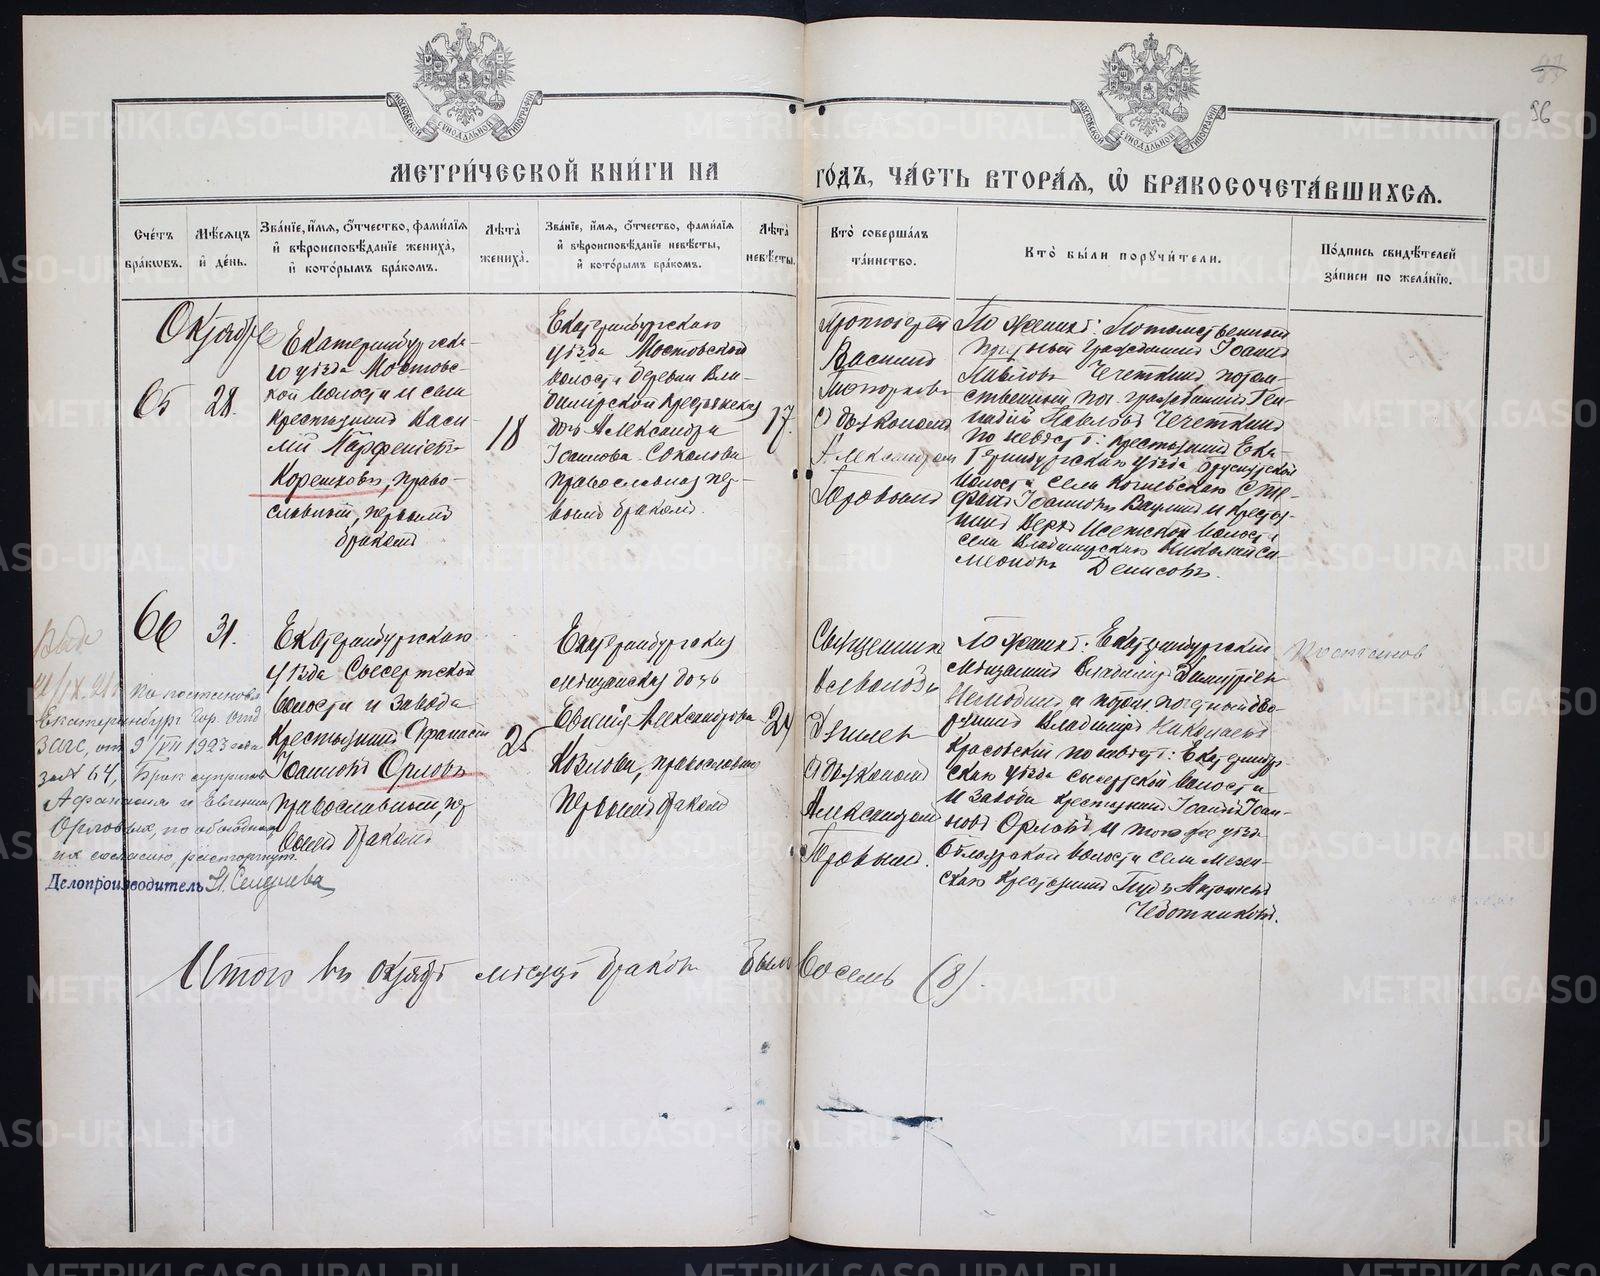 МОСКОВСКОЙ СѴНОДАЛЬНОЙ ТИПОГРАФІИ
МОСКОВСКОЙ СѴНОДАЛЬНОЙ ТИПОГРАФІИ
96
МЕТРИ́ЧЕСКОЙ КНИ́ГИ НА
ГО́ДЪ, ЧА́СТЬ ВТОРА́Ѧ, Ѡ БРАКОСОЧЕТА́ВШИХСѦ.
Сче́тъ бра́кѡвъ.
Мѣ́сѧцъ и҆ де́нь.
Зва́нїе, и҆́мѧ, ѻ҆́тчество, фами́лїѧ и҆ вѣроисповѣ́данїе жениха̀, и҆ кото́рымъ бра́комъ.
Лѣ́та жениха̀.
Зва́нїе, и҆́мѧ, ѻ҆́тчество, фами́лїѧ и҆ вѣроисповѣ́данїе невѣ́сты, и҆ кото́рымъ бра́комъ.
Лѣ́та невѣ́сты.
Кто̀ соверша́лъ та́инство.
Кто̀ бы́ли порꙋчи́тели.
По́дпись свидѣ́телей за́писи по жела́нїю.
Октябрь
65
28.
Екатеринбургска-
го уѣзда Мостовс-
кой волости и села
крестьянинъ Васи-
лій Парфеніевъ
Корешковъ, право-
славный, первымъ
бракомъ
18
Екатеринбургскаго
уѣзда Мостовской
волости деревни Вла-
димірской крестьянская
дочь Александра
Іоаннова Соколова
православная пер-
вымъ бракомъ.
17.
Протоіерей
Василій
съ діакономъ
Александромъ
По женихѣ: Потомственный
почетный гражданинъ Іоаннъ
Павловъ Чечеткинъ потом-
ственный поч. гражданинъ Ген-
надій Павловъ Чечеткинъ
по невѣстѣ: крестьянинъ Ека-
теринбургскаго уѣзда
волости села Ключевскаго Сте-
фанъ Іоанновъ и кресть-
янинъ Верхъ Исетской волости
села Владимірскаго Николай Си-
меоновъ Денисовъ.
66
31.
Екатеринбургскаго
уѣзда Сысертской
волости и завода
крестьянинъ Афанасій
Іоанновъ Орловъ
православный, пер
вымъ бракомъ
25
Екатеринбургская
мѣщанская дочь
Евгенія Александрова
Козлова, православная
первымъ бракомъ
24
Священникъ
Всеволодъ
съ діакономъ
Александромъ
По женихѣ: Екатеринбургскій
мѣщанинъ Владиміръ Димитріевъ
и потом. почетный гра-
жданинъ Владиміръ Николаевъ
Красовскій по невѣстѣ: Екатеринбург-
скаго уѣзда Сысертской волости
и завода крестьянинъ Іоаннъ Іоан-
новъ Орловъ и того же уѣзда
волости села
скаго крестьянинъ
Чеботниковъ.
По постановл.
Екатеринбург Гор. Отд
Загс, от 9/VII 1923 года
за № 64, Брак супругов
Афанасия и Евгении
Орловых, по обоюдному
их согласию расторгнут.
Делопроизводитель
Итого въ октябрѣ мѣсяцѣ браковъ было восемь (8).
METRIKI.GASO-URAL.RU